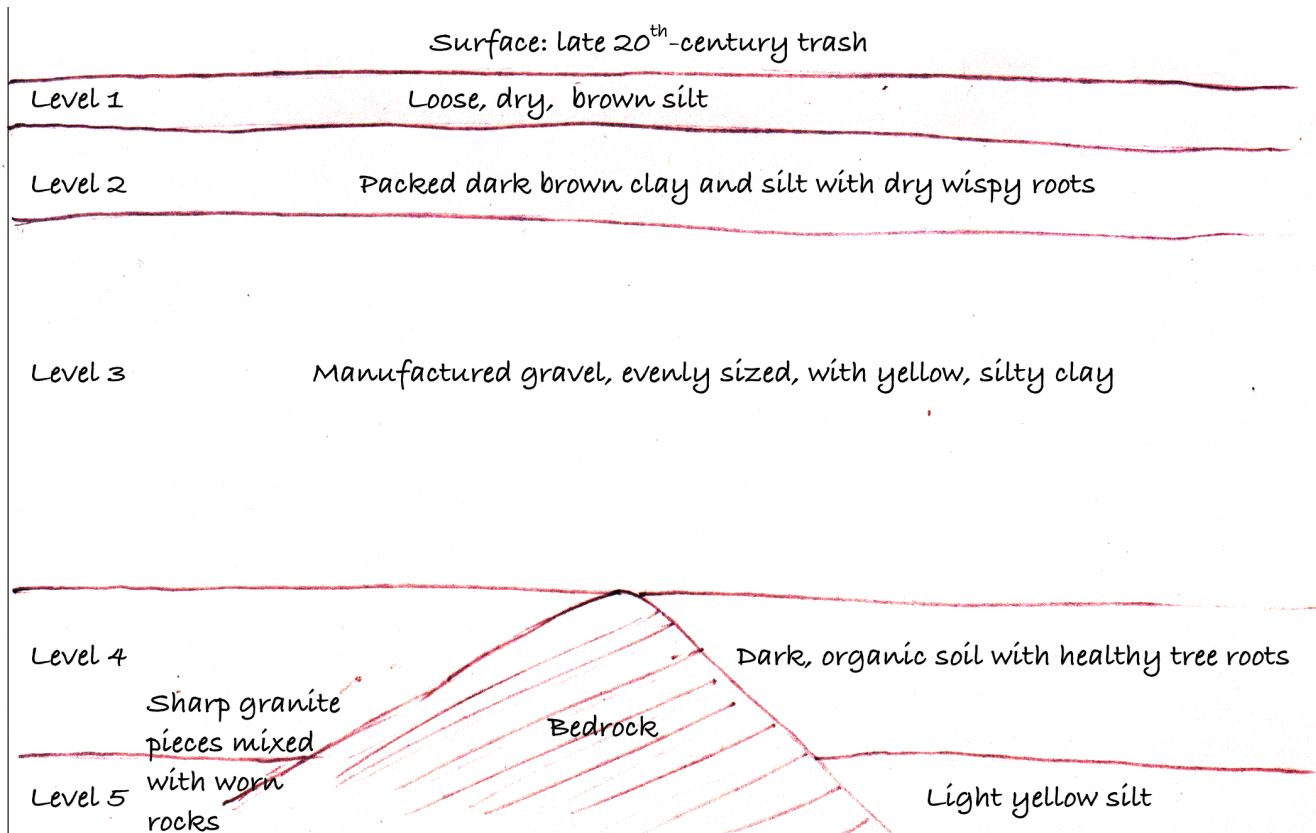 Surface: late 20th-century trash
Level 1 Loose, dry, brown silt
Level 2 Packed dark brown clay and silt with dry wispy roots
Level 3 Manufactured gravel, evenly sized, with yellow, silty clay
Level 4 Dark, organic soil with healthy tree roots
Sharp granite
pieces mixed
with worn
rocks
Bedrock
Level 5 Light yellow silt